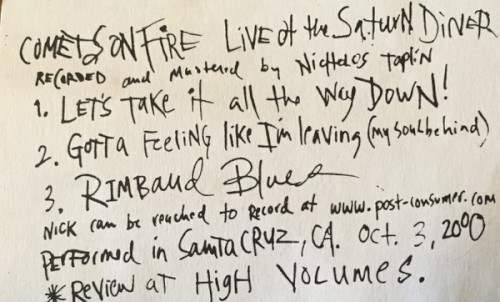 COMETS ON FIRE LIVE at the SATURN DINER
RECORDED and Mastered by Nicholas Taplin
1. LET'S TAKE it all the WAY DOWN!
2. GOTTA FEELING like I'm leaving (my soul behind)
3. RIMBAUD Blues
NICK can be reached to Record at www.post-consumer.com
PERFORMED in SANTA CRUZ, CA. Oct. 3, 2000
*REVIEW AT HIGH VOLUMES.